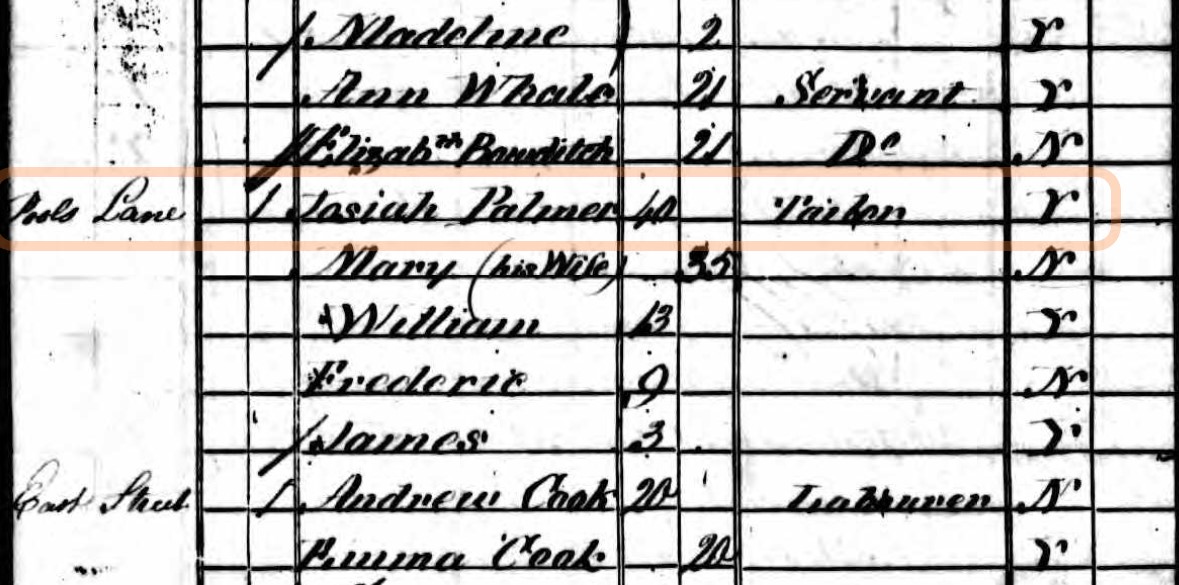 Madeline 2 Y
Ann Whale 21 Servant Y
Elizabth Bowditch 21 Do N
Pools Lane 1 Josiah Palmer 40 Tailor Y
Mary (his Wife) 35 N
William 13 Y
Frederic 9 N
James 3 Y
East Street 1 Andrew Cook 20 Labourer N
Emma Cook 20 Y